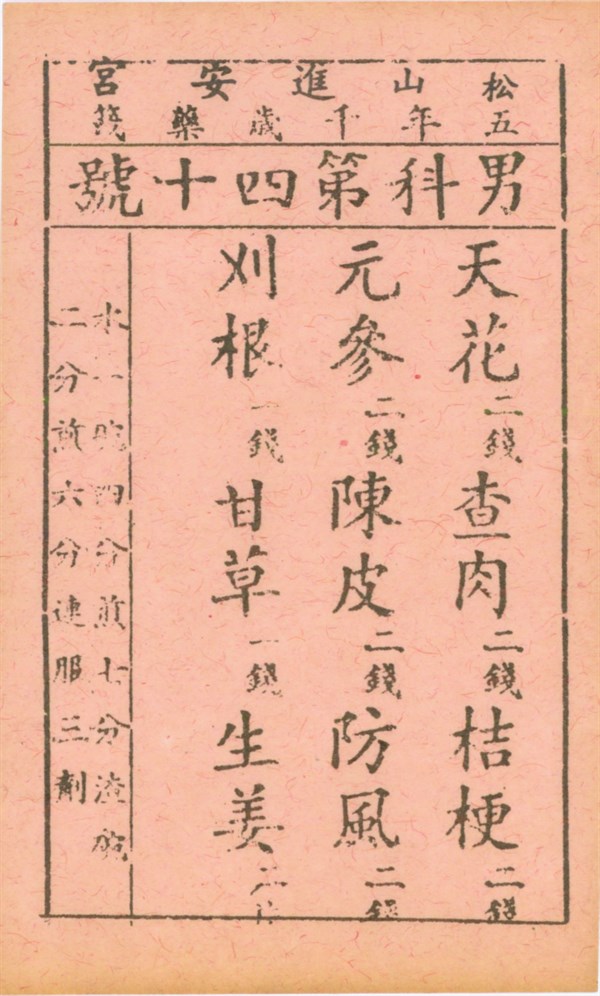 松山進安宮
五年千歲藥箋
男科第四十號
天花二錢 查肉二錢 桔梗二錢
元參二錢 陳皮二錢 防風二錢
刈根一錢 甘草一錢 生姜二片
水一碗四分煎七分渣碗
二分煎六分連服三劑